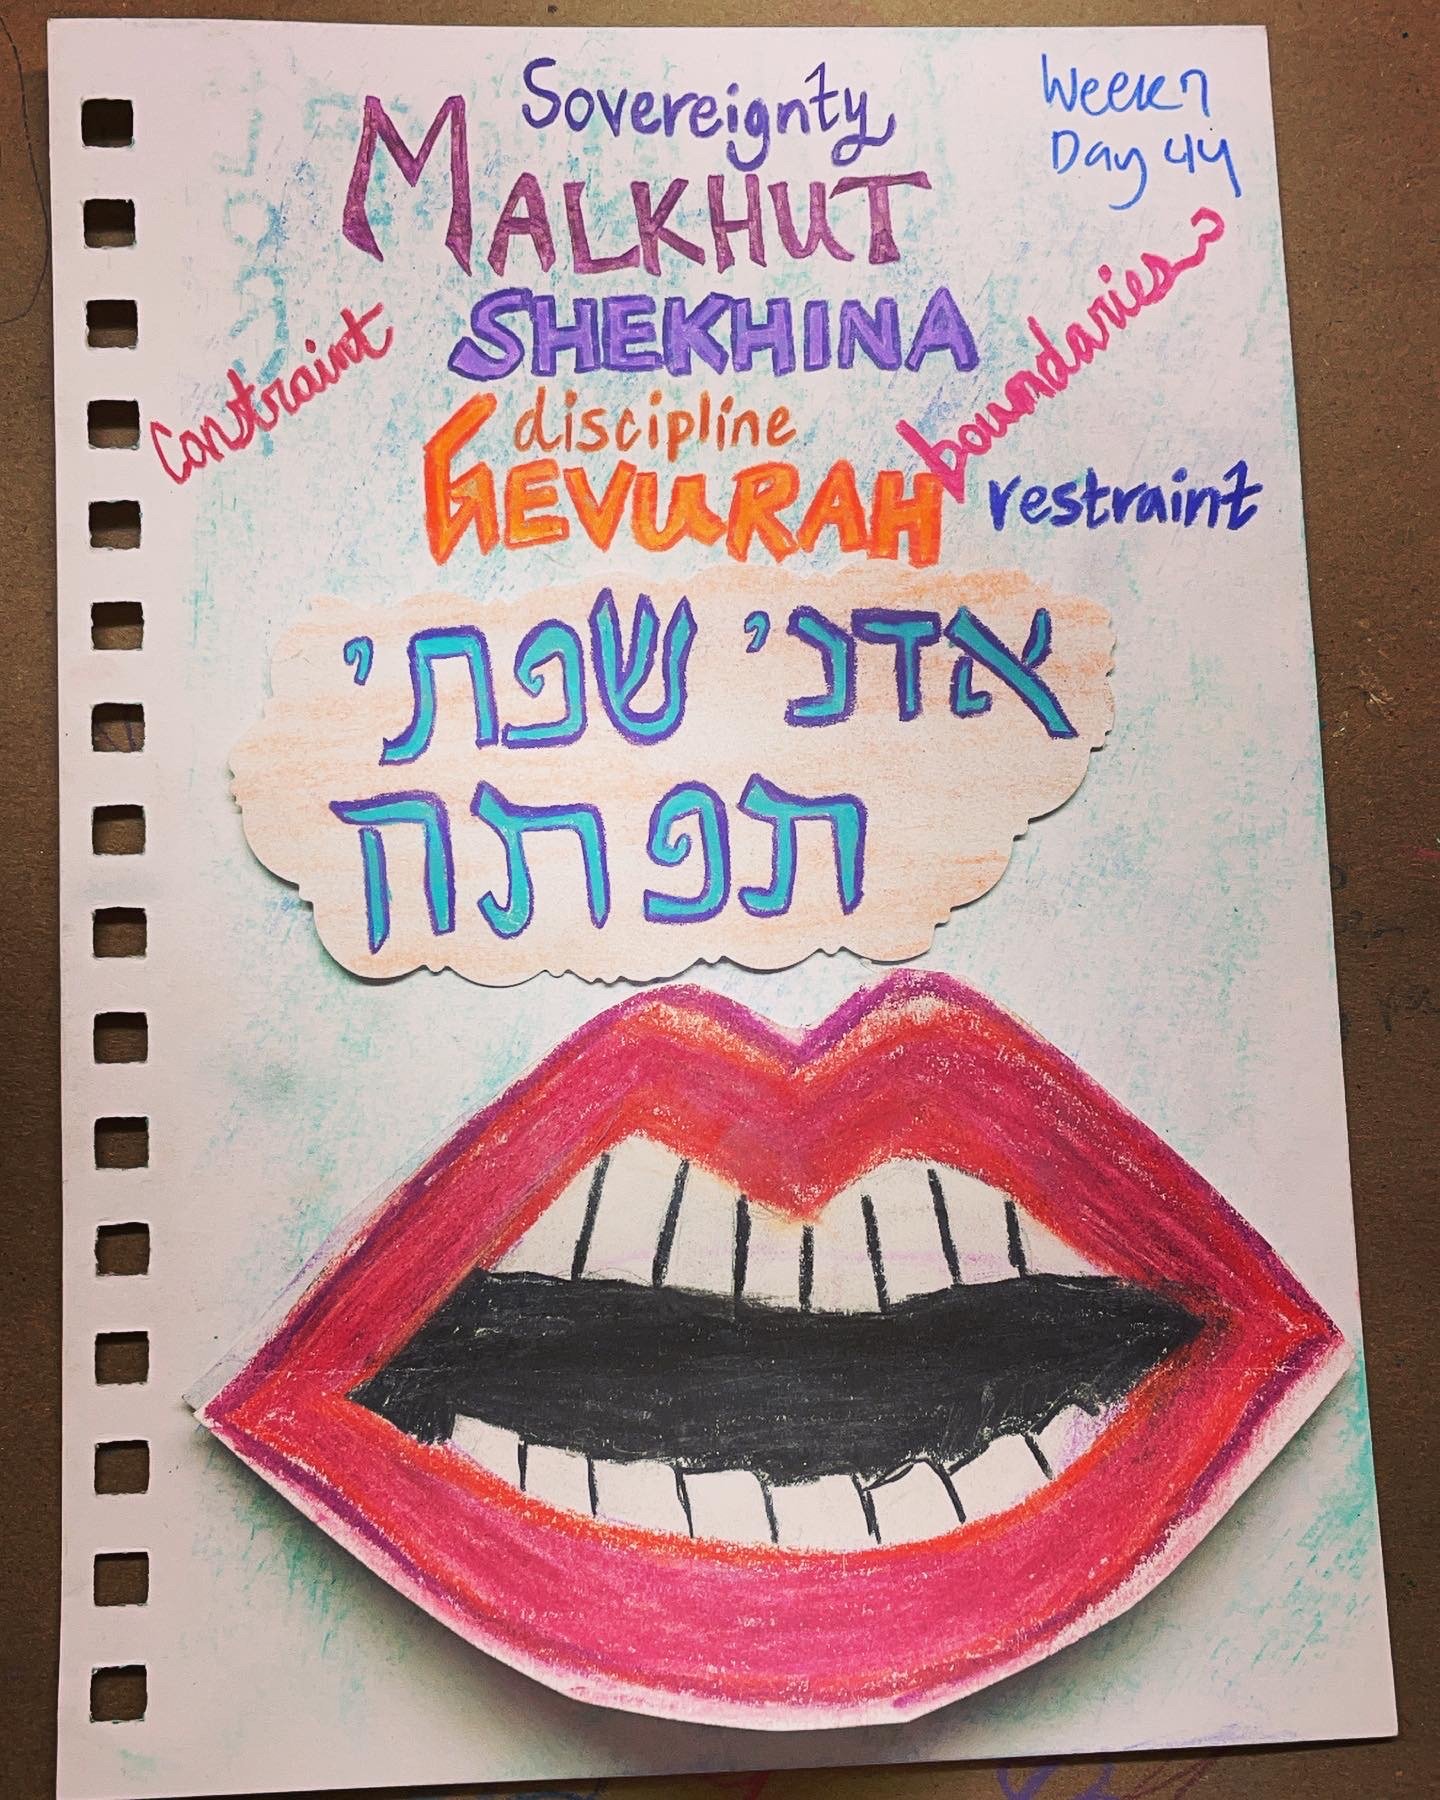 Sovereignty
Week 7
Day 44
MALKHUT
SHEKHINA
constraint
boundaries
discipline
GEVURAH
restraint
אדנ׳ שפת׳
תפתח